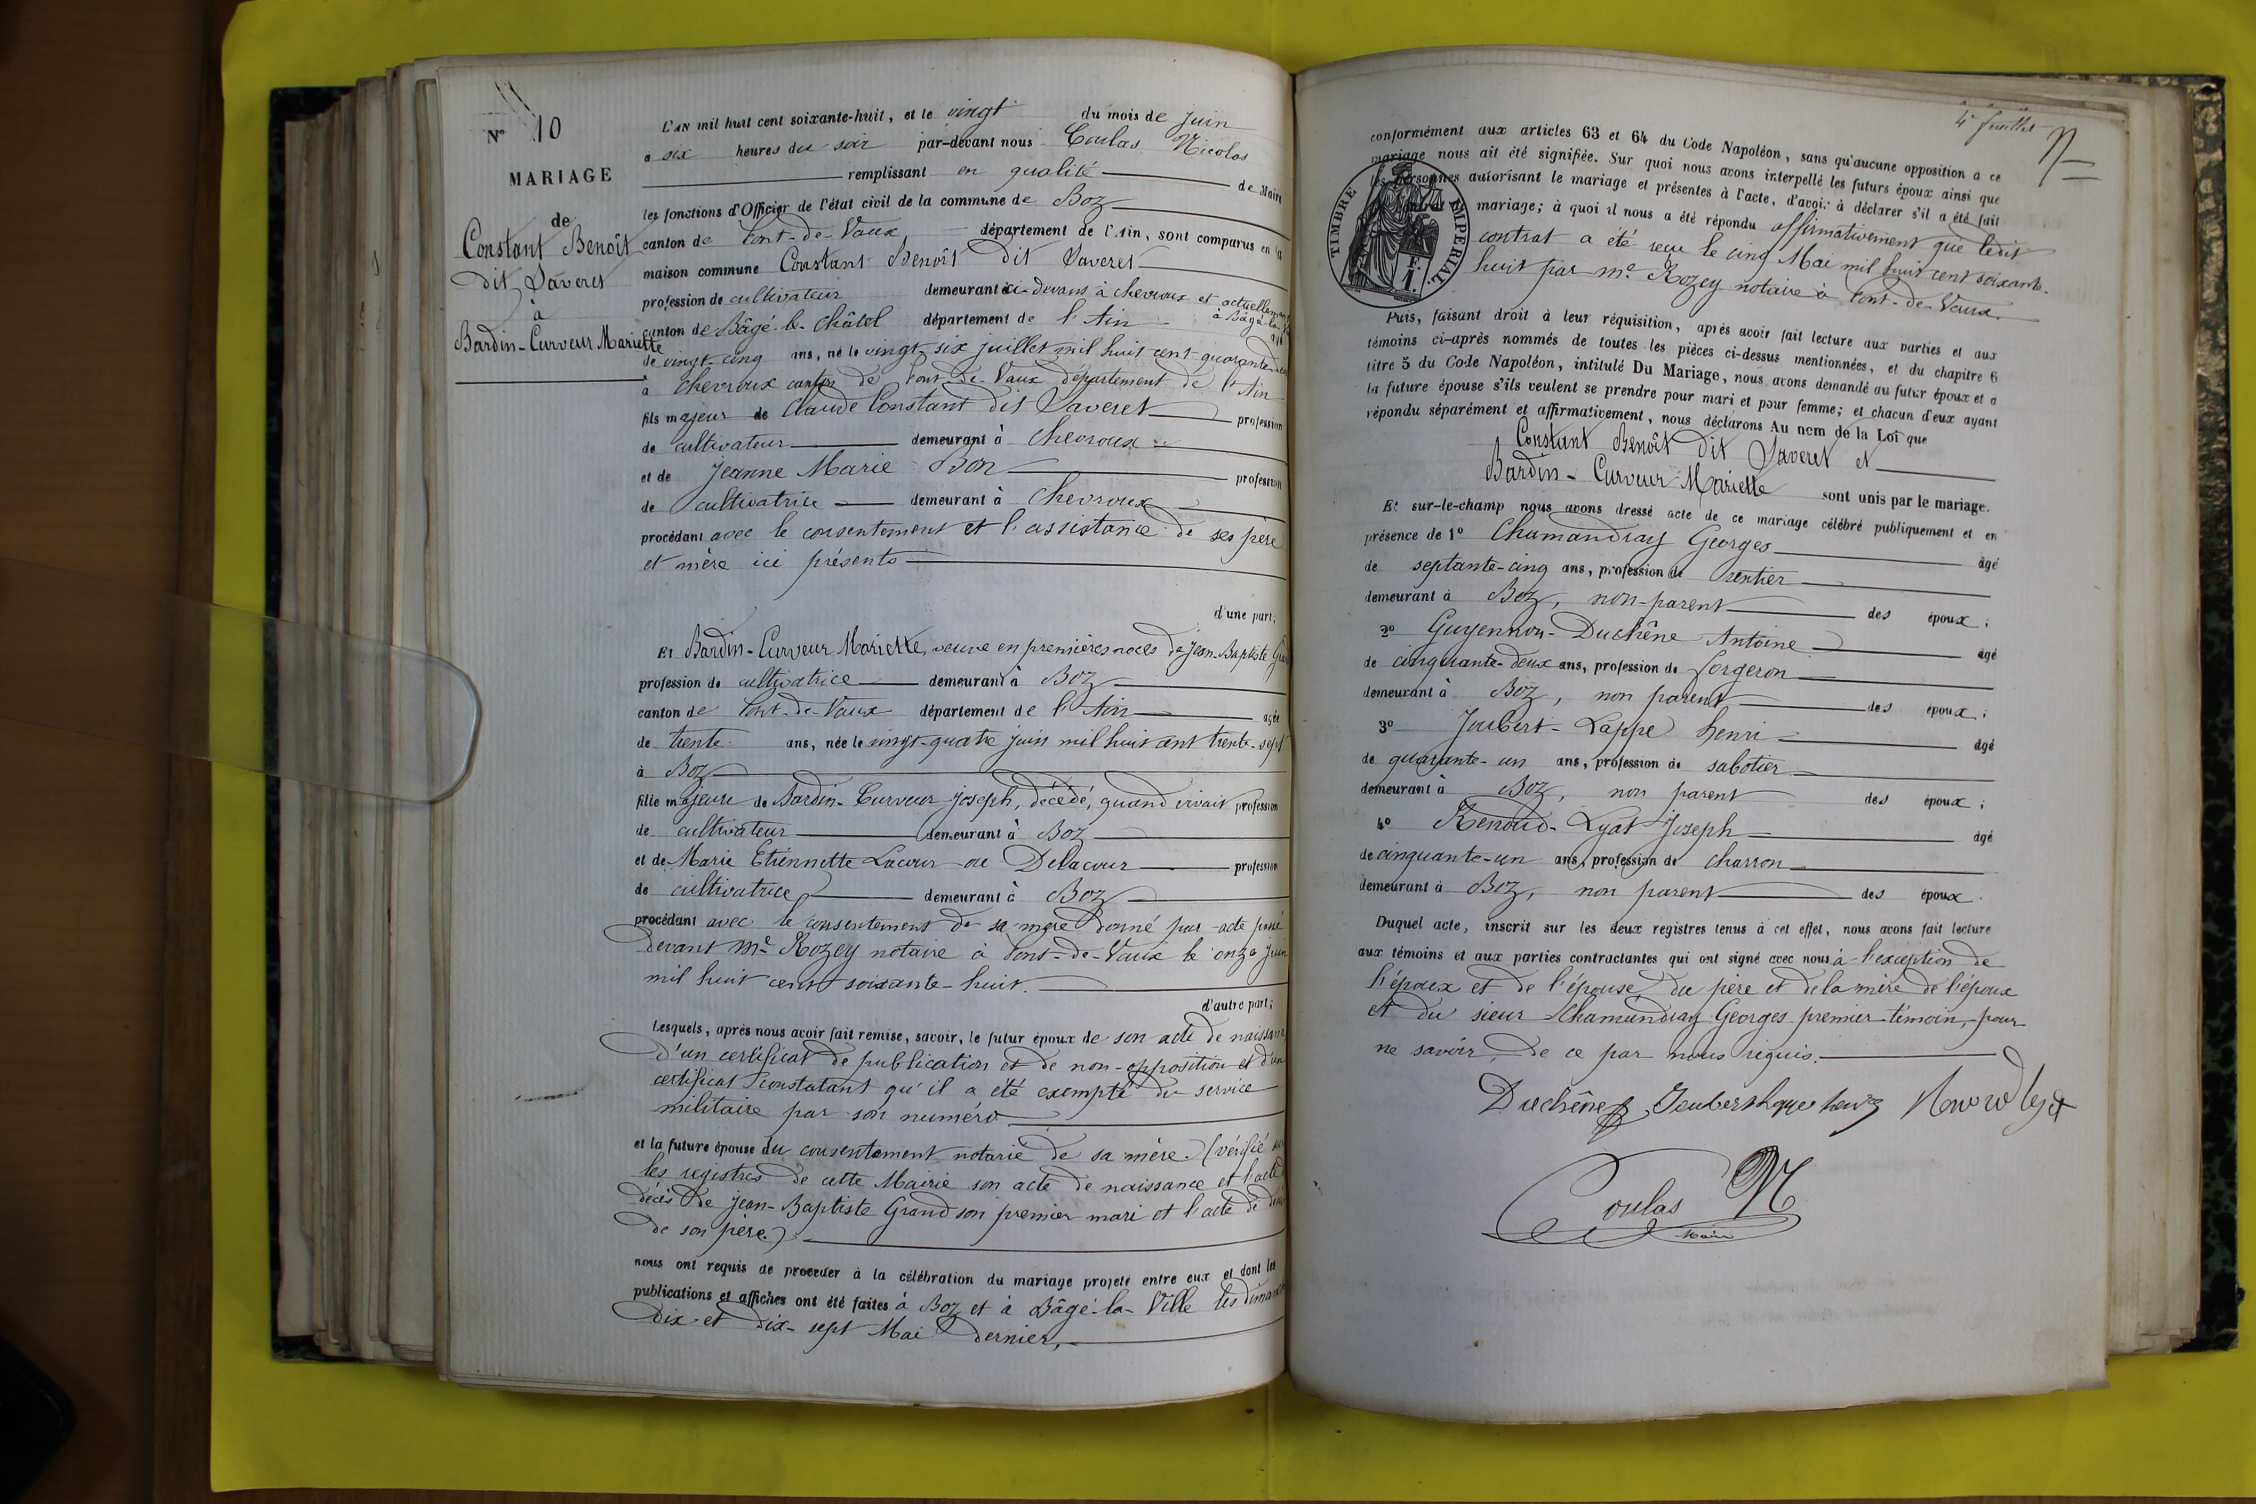 N° 10
MARIAGE
de
Constant Benoît
dit Saveret
à
Bardin-Curveur Mariette
L'AN mil huit cent soixante-huit, et le vingt du mois de juin
à six heures du soir par-devant nous Coulas Nicolas
remplissant en qualité de Maire
les fonctions d'Officier de l'état civil de la commune de Boz
canton de Pont-de-Vaux département de l'Ain, sont comparus en la
maison commune Constant Benoît dit Saveret
profession de cultivateur demeurant ci-devant à Chevroux et actuellement
à Bâgé-la-
canton de Bâgé-le-Châtel département de l'Ain
de vingt-cinq ans, né le vingt-six juillet mil huit cent quarante-
à Chevroux canton de Pont-de-Vaux département de l'Ain
fils majeur de Claude Constant dit Saveret profession
de cultivateur demeurant à Chevroux
et de Jeanne Marie Bon profession
de cultivatrice demeurant à Chevroux
procédant avec le consentement et l'assistance de ses père
et mère ici présents
d'une part;
Et Bardin-Curveur Mariette, veuve en premières noces de Jean-Baptiste
profession de cultivatrice demeurant à Boz
canton de Pont-de-Vaux département de l'Ain agée
de trente ans, née le vingt-quatre juin mil huit cent trente-sept
à Boz
fille majeure de Bardin-Curveur Joseph, décédé, quand vivait profession
de cultivateur demeurant à Boz
et de Marie Etiennette Lacour ou Delacour profession
de cultivatrice demeurant à Boz
procédant avec le consentement de sa mère donné par acte passé
devant Me Rozey notaire à Pont-de-Vaux le onze Juin
mil huit cent soixante-huit.
d'autre part;
Lesquels, après nous avoir fait remise, savoir, le futur époux de son acte de naissance
d'un certificat de publication et de non-opposition et d'un
certificat constatant qu'il a été exempté du service
militaire par son numéro
et la future épouse du consentement notarié de sa mère. (vérifié
les registres de cette Mairie son acte de naissance et l'acte
décès de Jean-Baptiste Grand son premier mari et l'acte de décès
de son père.)
nous ont requis de procéder à la célébration du mariage projeté entre eux et dont les
publications et affiches ont été faites à Boz et à Bâgé-la-Ville les dimanches
dix et dix-sept Mai dernier,
4e feuillet
conformément aux articles 63 et 64 du Code Napoléon, sans qu'aucune opposition a ce
mariage nous ait été signifiée. Sur quoi nous avons interpellé les futurs époux ainsi que
les personnes autorisant le mariage et présentes à l'acte, d'avoir à déclarer s'il a été fait
contrat de mariage; à quoi il nous a été répondu affirmativement que ledit
contrat a été reçu le cinq Mai mil huit cent soixante-
huit par Me Rozey notaire à Pont-de-Vaux.
TIMBRE IMPÉRIAL
1 F.
Puis, faisant droit à leur réquisition, après avoir fait lecture aux parties et aux
témoins ci-après nommés de toutes les pièces ci-dessus mentionnées, et du chapitre 6
titre 5 du Code Napoléon, intitulé Du Mariage, nous avons demandé au futur époux et a
la future épouse s'ils veulent se prendre pour mari et pour femme; et chacun d'eux ayant
répondu séparément et affirmativement, nous déclarons Au nom de la Loi que
Constant Benoît dit Saveret et
Bardin-Curveur Mariette sont unis par le mariage.
Et sur-le-champ nous avons dressé acte de ce mariage célébré publiquement et en
présence de 1° Chamandray Georges agé
de septante-cinq ans, profession de rentier
demeurant à Boz, non-parent des époux;
2° Guyennon-Duchêne Antoine agé
de cinquante-deux ans, profession de forgeron
demeurant à Boz, non parent des époux;
3° Joubert-Lappe Henri agé
de quarante-un ans, profession de sabotier
demeurant à Boz, non parent des époux;
4° Renoud-Lyat Joseph agé
de cinquante-un ans, profession de charron
demeurant à Boz, non parent des époux.
Duquel acte, inscrit sur les deux registres tenus à cet effet, nous avons fait lecture
aux témoins et aux parties contractantes qui ont signé avec nous à l'exception de
l'époux et de l'épouse, du père et de la mère de l'époux
et du sieur Chamandray Georges premier témoin, pour
ne savoir, de ce par nous requis.
Duchêne
Coulas N
Maire